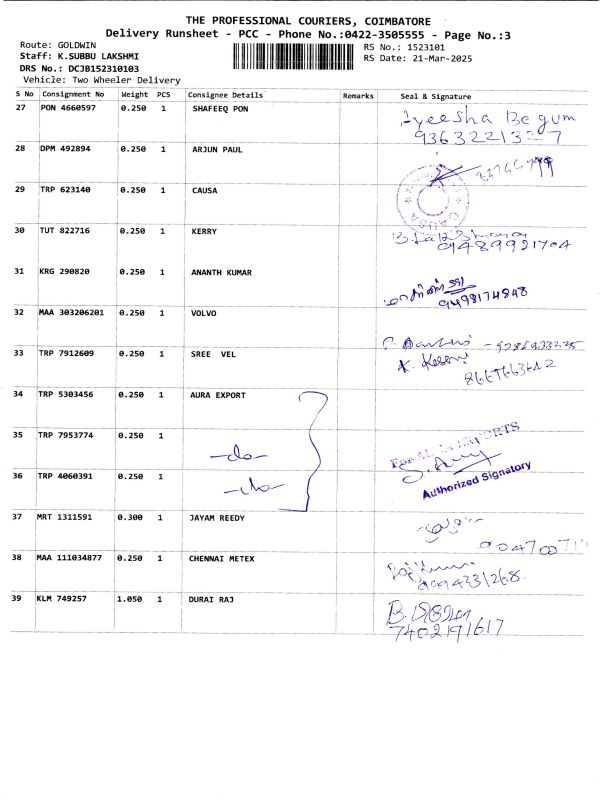 THE PROFESSIONAL COURIERS, COIMBATORE
Delivery Runsheet - PCC - Phone No.:0422-3505555 - Page No.:3
Route: GOLDWIN
RS No.: 1523101
Staff: K.SUBBU LAKSHMI
RS Date: 21-Mar-2025
DRS No.: DCJB152310103
Vehicle: Two Wheeler Delivery
S No Consignment No Weight PCS Consignee Details Remarks Seal & Signature
27 PON 4660597 0.250 1 SHAFEEQ PON Ayeesha Begum
9363221327
28 DPM 492894 0.250 1 ARJUN PAUL
29 TRP 623140 0.250 1 CAUSA CAUSA
30 TUT 822716 0.250 1 KERRY
9489921704
31 KRG 290820 0.250 1 ANANTH KUMAR
9498174848
32 MAA 303206201 0.250 1 VOLVO
33 TRP 7912609 0.250 1 SREE VEL
8667663642
34 TRP 5303456 0.250 1 AURA EXPORT
35 TRP 7953774 0.250 1 -do-
36 TRP 4060391 0.250 1 -do- Authorized Signatory
37 MRT 1311591 0.300 1 JAYAM REEDY
38 MAA 111034877 0.250 1 CHENNAI METEX
9994331268
39 KLM 749257 1.050 1 DURAI RAJ
7402191617